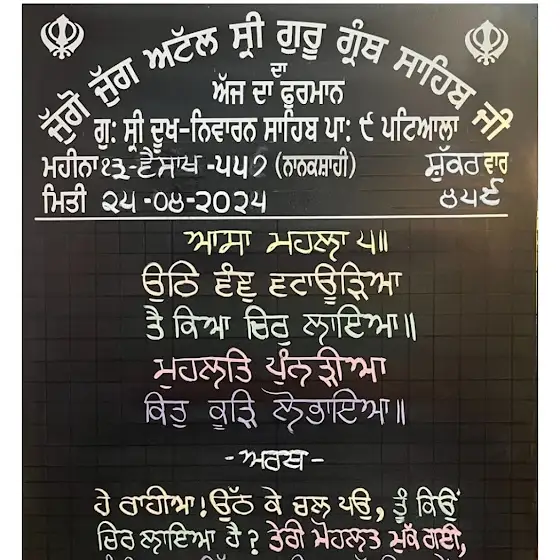 ਜੁੱਗੋ ਜੁੱਗ ਅਟੱਲ ਸ੍ਰੀ ਗੁਰੂ ਗ੍ਰੰਥ ਸਾਹਿਬ ਜੀ
ਦਾ
ਅੱਜ ਦਾ ਫੁਰਮਾਨ
ਗੁ: ਸ੍ਰੀ ਦੂਖ-ਨਿਵਾਰਨ ਸਾਹਿਬ ਪਾ: ੯ ਪਟਿਆਲਾ
ਮਹੀਨਾ ੧੩-ਵੈਸਾਖ -੫੫੭ (ਨਾਨਕਸ਼ਾਹੀ) ਸ਼ੁੱਕਰ ਵਾਰ
ਮਿਤੀ ੨੫-੦੪-੨੦੨੫ ੪੫੬
ਆਸਾ ਮਹਲਾ ੫॥
ਉਠਿ ਵੰਞੁ ਵਟਾਊੜਿਆ
ਤੈ ਕਿਆ ਚਿਰੁ ਲਾਇਆ॥
ਮੁਹਲਤਿ ਪੁੰਨੜੀਆ
ਕਿਤੁ ਕੂੜਿ ਲੋਭਾਇਆ॥
-ਅਰਥ-
ਹੇ ਰਾਹੀਆ! ਉੱਠ ਕੇ ਚਲ ਪਓ, ਤੂੰ ਕਿਉਂ
ਚਿਰ ਲਾਇਆ ਹੈ? ਤੇਰੀ ਮੋਹਲਤ ਮੁੱਕ ਗਈ,